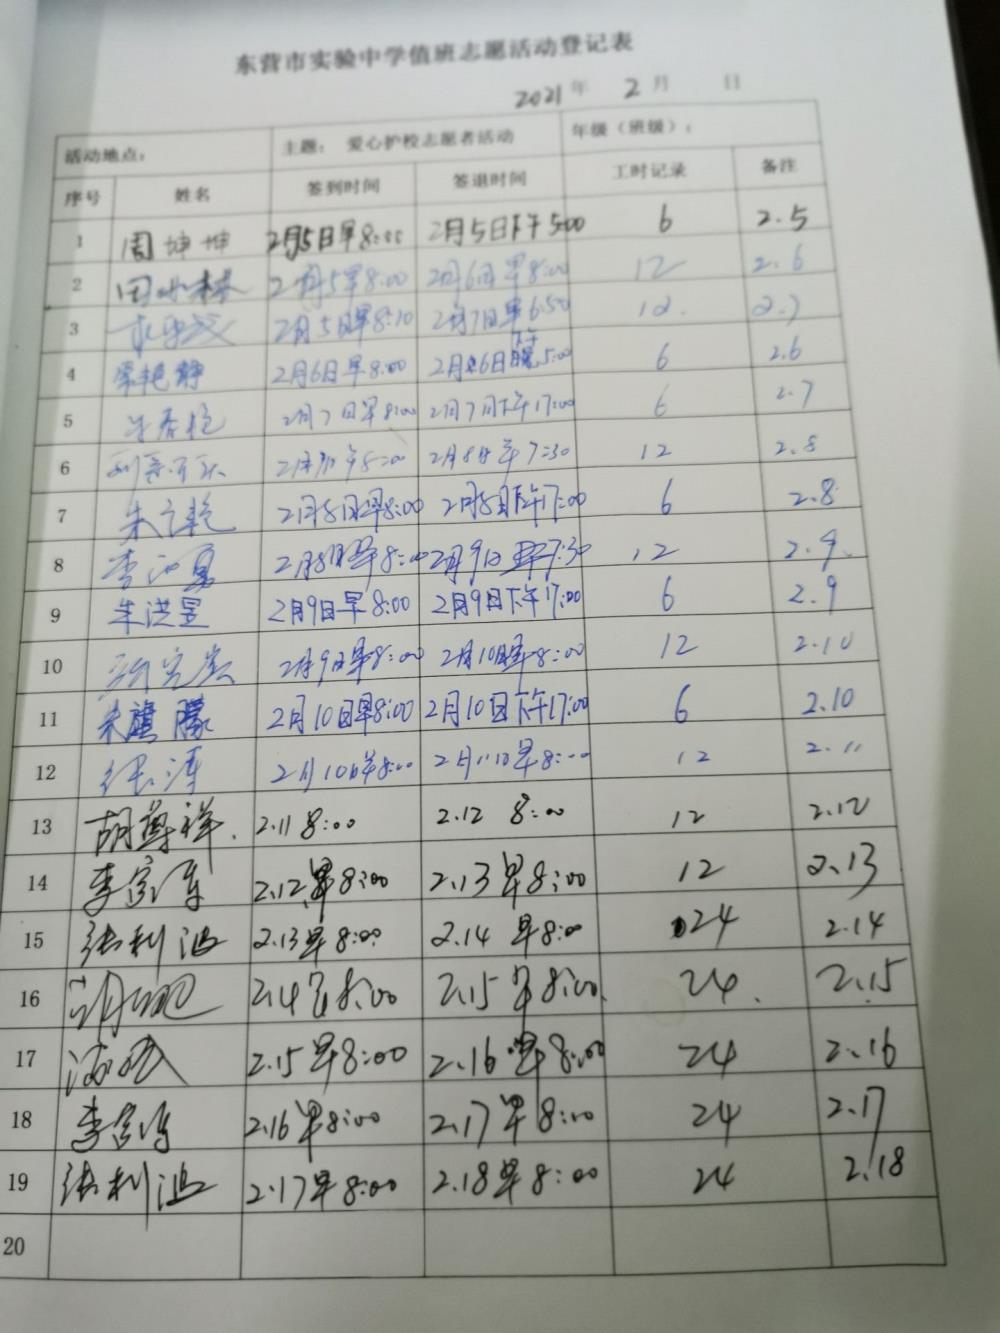 东营市实验中学值班志愿活动登记表
2021 年 2 月 日
活动地点： 主题： 爱心护校志愿者活动 年级（班级）：
序号 姓名 签到时间 签退时间 工时记录 备注
1 周坤坤 2月5日早8:00 2月5日下午5:00 6 2.5
2 2月5早8:00 2月6日早8:00 12 2.6
3 2月5日早8:10 2月7日早6:50 12. 2.7
4 2月6日早8:00 2月6日下午5:00 6 2.6
5 2月7日早8:00 2月7日下午17:00 6 2.7
6 2月8日早7:30 12 2.8
7 朱立艳 2月8日早8:00 2月8日下午17:00 6 2.8
8 2月8日早8:00 2月9日早7:30 12 2.9
9 朱洪昱 2月9日早8:00 2月9日下午17:00 6 2.9
10 2月9日早8:00 2月10日早8:00 12 2.10
11 朱 2月10日早8:00 2月10日下午17:00 6 2.10
12 2月10日早8:00 早8:00 12 2.11
13 胡尊祥. 2.11 8:00 2.12 8:00 12 2.12
14 2.12早8:00 2.13早8:00 12 2.13
15 张利鸿 2.13早8:00 2.14 早8:00 24 2.14
16 2.14早8:00 2.15早8:00 24 2.15
17 2.15早8:00 2.16早8:00 24 2.16
18 2.16早8:00 2.17早8:00 24 2.17
19 张利鸿 2.17早8:00 2.18早8:00 24 2.18
20